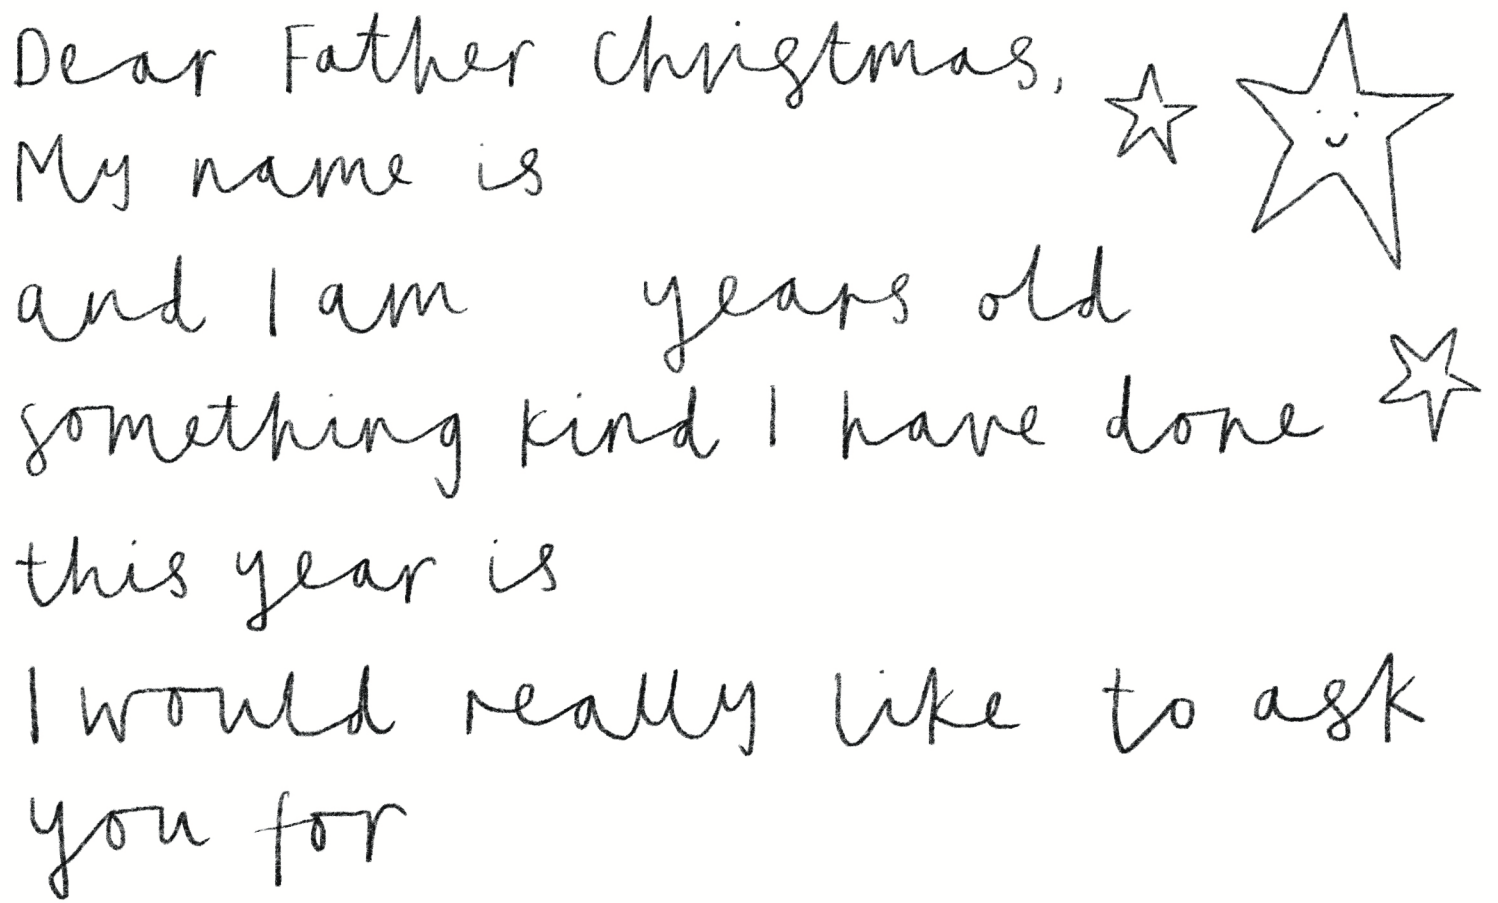 Dear Father Christmas,
My name is
and I am years old
something kind I have done
this year is
I would really like to ask
you for